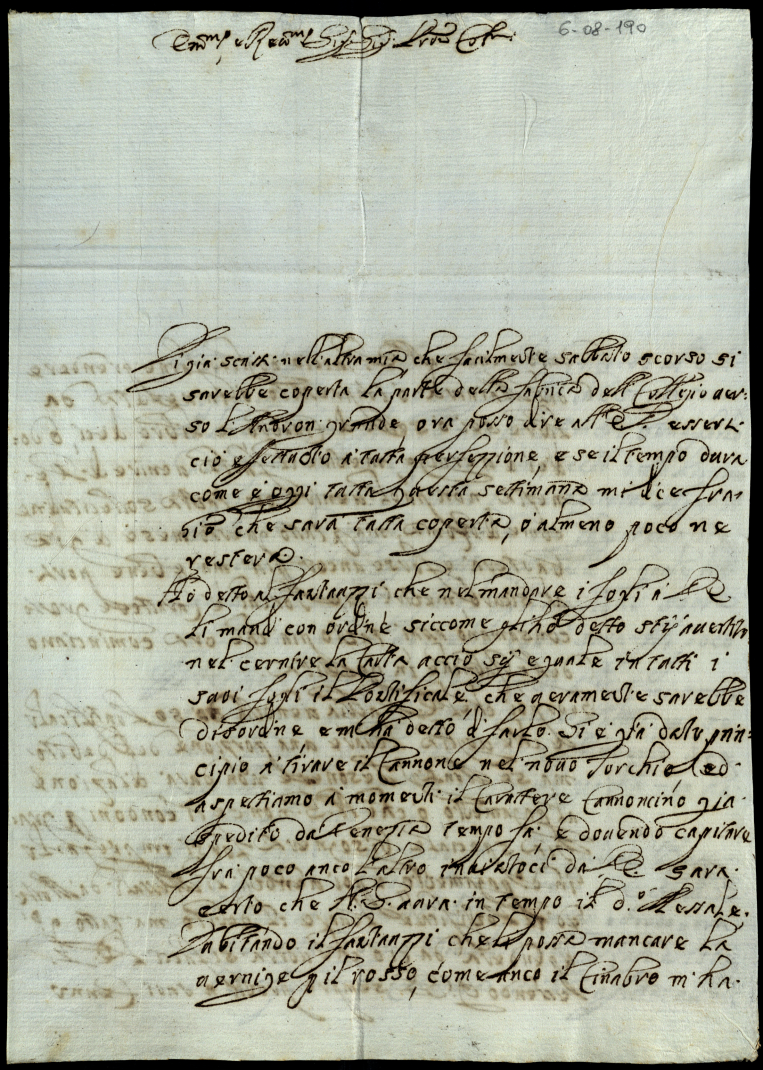 6-08-190
Em.mo e Re.mo Sig.r Sig.r P.rone Col.mo
Di già scrissi nell'altra mia che facilmente sabbato scorso si
sarebbe coperta la parte della fabrica dell Colleggio ver:
so l'Andron grande, ora posso dire all' E. V. esserci
ciò effettuato a tutta perfezzione, e se il tempo dura
come è oggi tutta questa settimana mi dice
che sarà tutta coperta, ò almeno poco ne
resterà.
Hò detto al che nel mandare i fogli a
li mandi con ordine siccome gl'hò detto stij avertito
nel cernire la Carta acciò sij eguale in tutti i
suoi fogli il Pontificale che veramente sarebbe
disordine e m'hà detto di farlo. Si è già dato prin:
cipio à tirare il Cannone nel novo Torchio ed
aspettiamo à momenti il Carattere Cannoncino già
spedito da Venezia tempo fà, e dovendo capitare
frà poco anco l'altro da sarà
certo che V. E. avrà in tempo il d.o Messale.
Dubitando il che li possa mancare la
vernice p il rosso, come anco il Cinabro m'ha